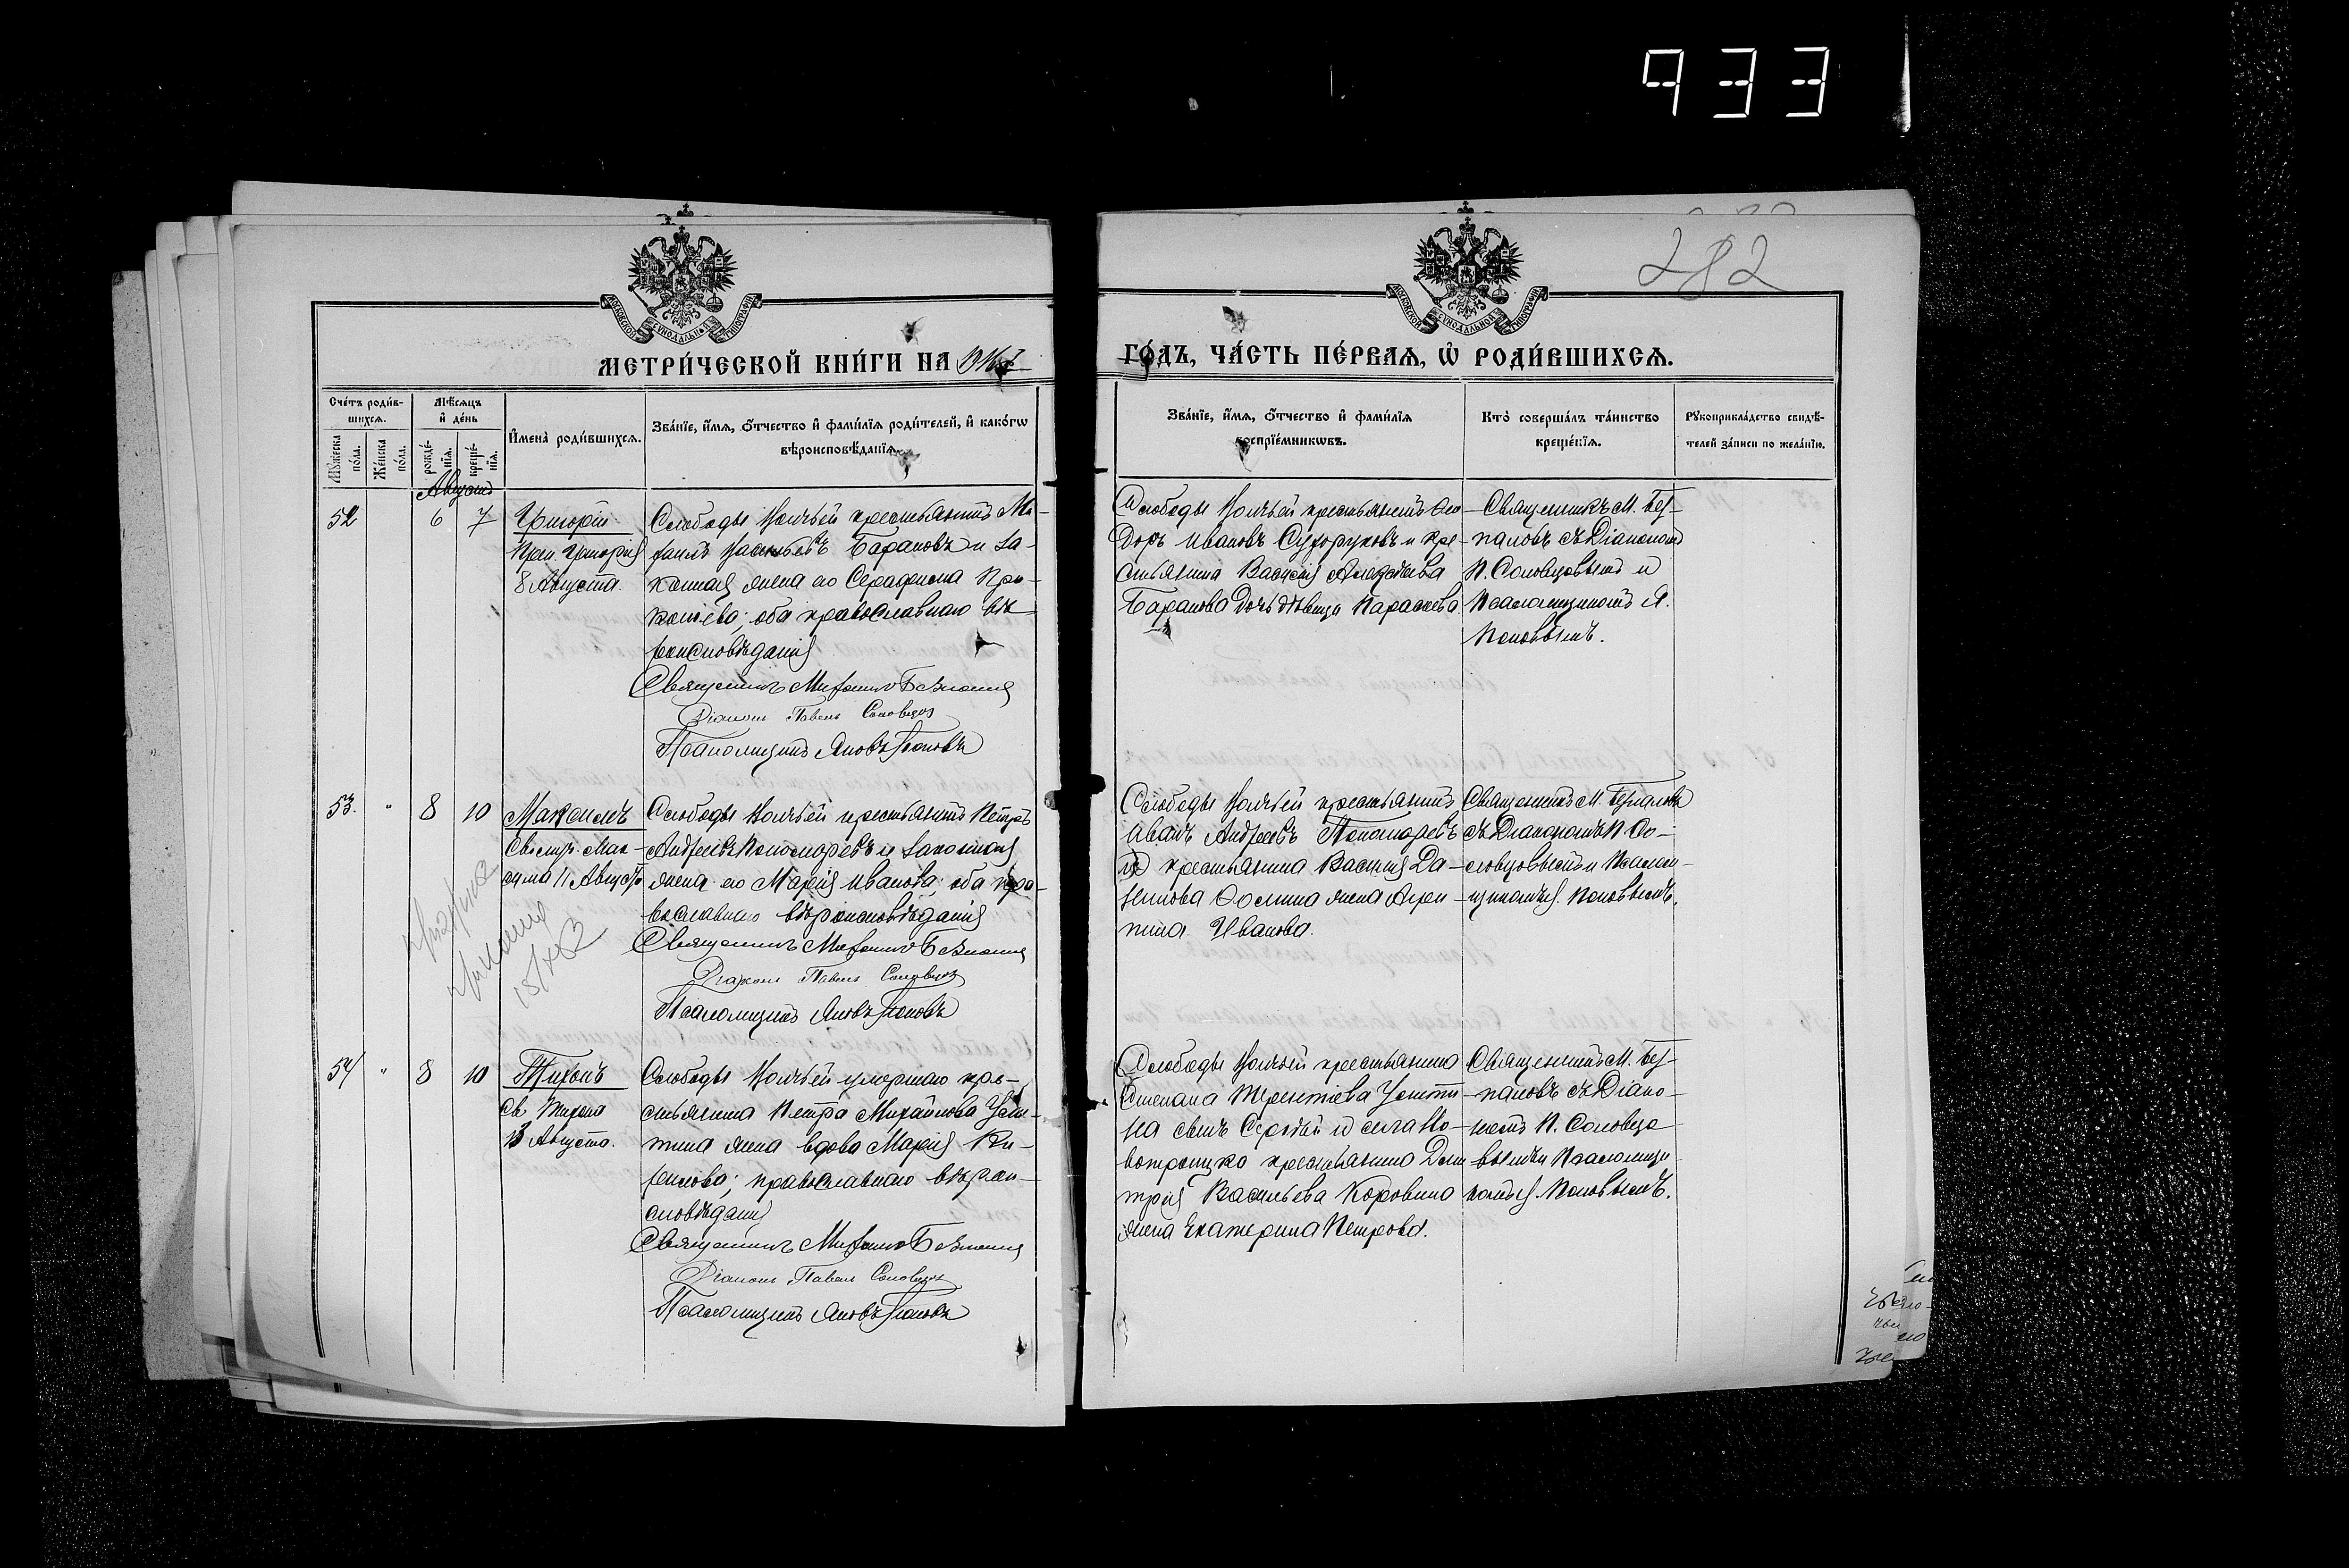 933
282
МОСКОВСКОЙ СУНОДАЛЬНОЙ ТИПОГРАФІИ
МОСКОВСКОЙ СУНОДАЛЬНОЙ ТИПОГРАФІИ
МЕТРИ́ЧЕСКОЙ КНИ́ГИ НА
ГО́ДЪ, ЧА́СТЬ ПЕ́РВАѦ, Ѡ҆ РОДИ́ВШИХСѦ.
Сче́тъ роди́в-
шихсѧ.
Мѣ́сѧцъ
и҆ де́нь
Мꙋ́жеска
по́ла.
Же́нска
по́ла.
рожде́-
нїѧ.
креще́-
нїѧ.
И҆мена̀ роди́вшихсѧ.
Зва́нїе, и҆́мѧ, ѻ҆́тчество и҆ фами́лїѧ роди́телей, и҆ како́гѡ
вѣроисповѣ́данїѧ.
Зва́нїе, и҆́мѧ, ѻ҆́тчество и҆ фами́лїѧ
воспрїе́мникѡвъ.
Кто̀ соверша́лъ та́инство
креще́нїѧ.
Рꙋкоприкла́дство свидѣ́-
телей за́писи по жела́нїю.
Августъ
52 6 7
Григорій
Преп. Григорія
8 Августа.
Слободы крестьянинъ Ми-
хаилъ Васильевъ Барановъ и за-
конная жена его Серафима Про-
копіева; оба православнаго вѣ-
роисповѣданія
Священникъ Михаилъ Безпаловъ
Діаконъ Павелъ Соловцовъ
Псаломщикъ Яковъ Поповъ
Слободы крестьянинъ Ѳео-
доръ Ивановъ Сухоруковъ и кре-
стьянина Василія Алексѣева
Баранова дочь дѣвица Параскева.
Священникъ М. Без-
паловъ съ Діакономъ
П. Соловцовымъ и
Псаломщикомъ Я.
Поповымъ.
53. " 8 10
Максимъ
Св. муч. Мак-
сима 11 Августа
Слободы крестьянинъ Петръ
Андреевъ Пономаревъ и законная
жена его Марія Иванова; оба пра-
вославнаго вѣроисповѣданія
Священникъ Михаилъ Безпаловъ
Діаконъ Павелъ Соловцовъ
Псаломщикъ Яковъ Поповъ
Слободы крестьянинъ
Иванъ Андреевъ Пономаревъ
и крестьянина Василія Да-
Ѳомина жена Агри-
пина Иванова.
Священникъ М. Безпаловъ
съ Діакономъ П. Со-
ловцовымъ и Псалом-
щикомъ Я. Поповымъ.
54 " 8 10
Тихонъ
Св. Тихона
13 Августа.
Слободы умершаго кре-
стьянина Петра Михайлова Усти-
нина жена вдова Марія Ки-
рилова; православнаго вѣрои-
сповѣданія
Священникъ Михаилъ Безпаловъ
Діаконъ Павелъ Соловцовъ
Псаломщикъ Яковъ Поповъ
Слободы крестьянина
Степана Терентіева
сынъ Сергѣй и села Но-
вотроицка крестьянина Дми-
трія Васильева Коровина
жена Екатерина Петрова.
Священникъ М. Без-
паловъ съ Діако-
номъ П. Соловцо-
вымъ и Псаломщи-
комъ Я. Поповымъ.